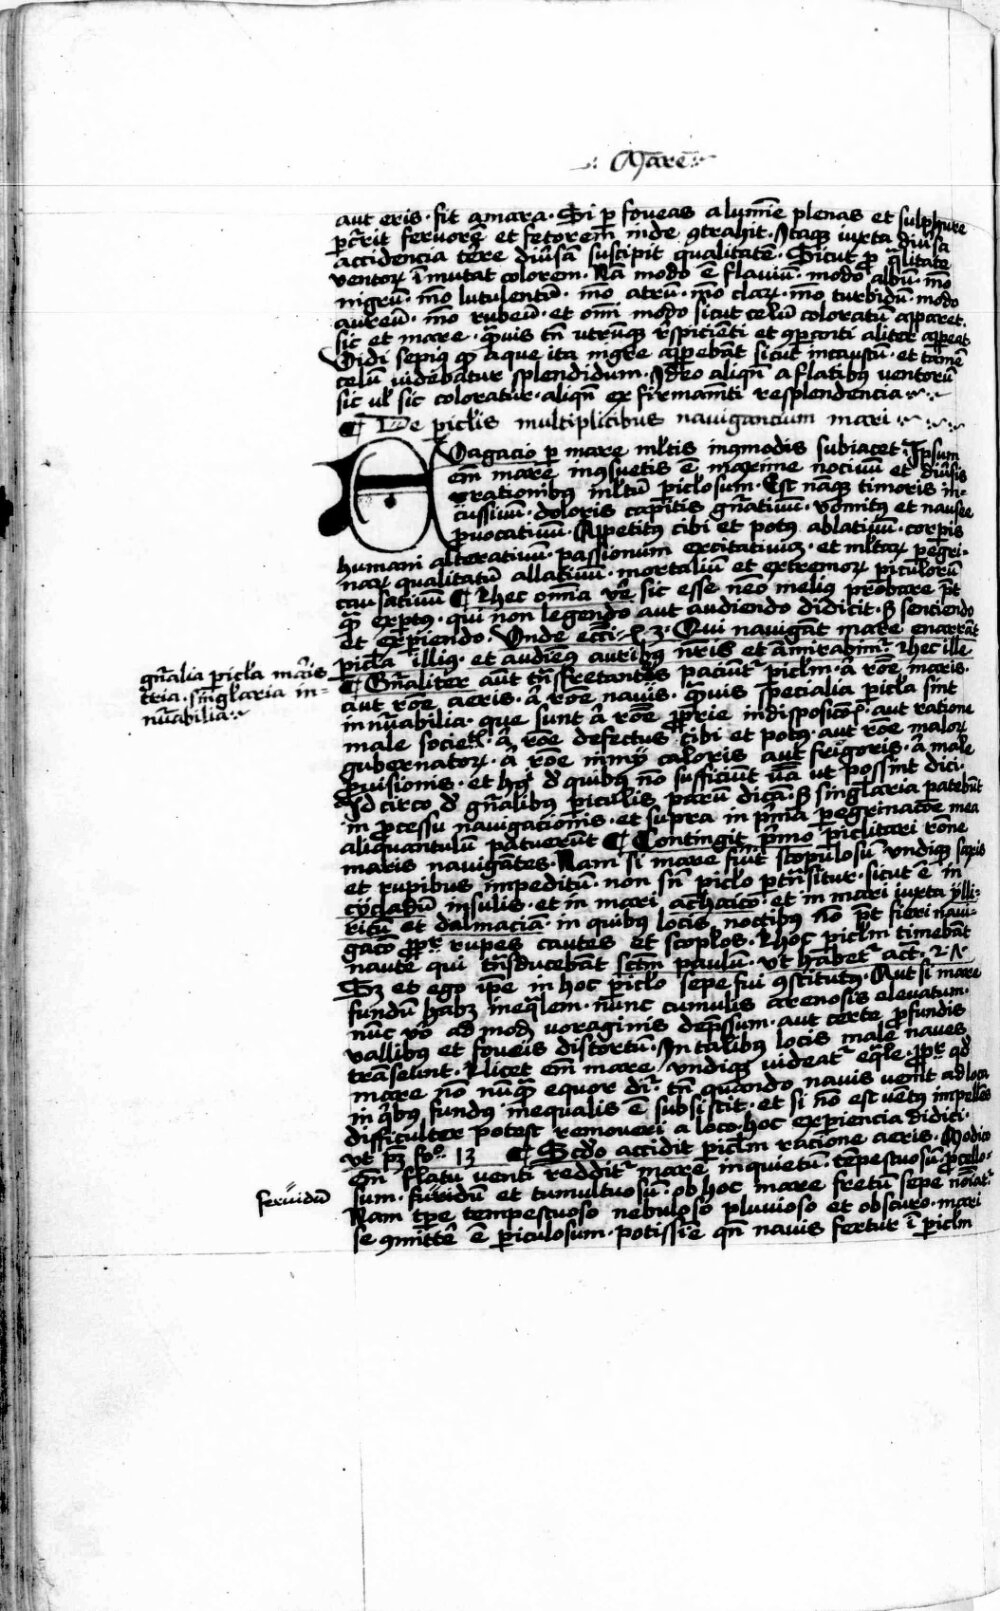 ·: Mare :·
aut eris · fit amara · Si p foveas alumīe plenas et sulphure
p̄trit fervorē et fetorem inde ꝯtrahit · Itaqꝫ iuxta diūsa
accidencia tēre diūsā suscipit qualitatē · Sicut pro q̄litate
ventoꝝ īmutat colorem · Nā modo ē flavium · modo albū · mō
nigrū · mō lutulentū · mō atrū · mō claꝝ · mō turbidū · modo
aureū · mō rubeū · et oīm modo sicut celū coloratū apparet ·
sic et mare · q̄vis tn̄ utrūqꝫ rspiciēti et ꝯpanti aliter appeat
Vidi sepiꝰ qꝫ aque ita nigre appebāt sicut incaustū · et tamē
celū videbatur splendidum · Ideo aliqn̄ a flatibꝰ ventorū
sic ul sic coloratur · aliqn̄ ex firmamīti resplendencia
¶ De piclis multiplicibus navigancium mari
Evagacio p mare mltis inꝯmodis subiacet · Ipsum
em̄ mare inꝯsuetis ē maxime nocivū et diūsis
racionibꝰ mltū piclosum · Est nāqꝫ timoris in-
cussivū · doloris capitis gn̄ativū · vomitꝰ et nausee
pvocativū · Appetitꝰ cibi et potꝰ ablativū · corpis
humani alterativū · passionum excitativū · et mltaꝝ pegri-
naꝝ qualitatū allativū · mortaliū et extremoꝝ piculorū
causativū ¶ Hec omīa vē sic esse nēo melius probare pt
q̄ exptꝰ · qui non legendo aut audiendo didicit · sꝫ senciendo
et expiendo · Unde ecci · 43 · Qui navigāt mare enarrāt
picla illiꝰ · et audiēꝰ auribꝰ nris et amirabimr · Hec ille
¶ Gn̄aliter aūt tn̄sfretantes paciunt piclm · a rōe maris ·
aut rōe aeris · a rōe navis · q̄vis specialia picla sint
innūabilia · que sunt a rōe proprie indisposicōis · aut ratione
male societatis · a rōe defectus cibi et potꝰ · aut rōe maloꝝ
gubernatoꝝ · a rōe nimij caloris aut frigoris · a male
pvisionis · et hꝰ d quibꝰ nō sufficiunt ūa ut possint dici ·
Idcirco d gn̄alibus piculis parū dicā · sꝫ singlaria patebūt
in pcessu navigacionis · et supra in pma pegrinacōe mea
aliquantulū patuerūt ¶ Contingit pmo piclitari rōne
maris navigātes · Nam si mare fūit scopulosū undiqꝫ saxis
et rupibus impeditū · non sn̄ piclo ptn̄situr · sicut ē in
cycladū insulis · et in mari achaico · et in mari iuxta ylli-
ricū et dalmaciā · in quibus locis noctibus nō pt fieri navi-
gacō ppr rupes cautes et scoplos · Hoc piclm timebāt
naute qui tn̄sducebāt sctm paulū · ut habet act · 27 ·
Sꝫ et ego ipe in hoc piclo sepe fui ꝯstitutꝰ · Aut si mare
fundū habꝫ ineqlem · nunc cumulis arenosis elevatum ·
nūc vō ad modū voraginis depssum · aut certe pfundis
vallibꝰ et foveis distortū · In talibus locis male naves
trāseunt · Et licet em̄ mare undiqꝫ videatr eqle · ppr qd
mare nō nūq̄ equor dr · tn̄ quando navis venit ad loca
in qbꝰ fundꝰ inequalis ē subsistit · et si nō est vētꝰ impellēs
difficulter potest removeri a loco · hoc expiencia didici ·
ut pꝫ fo · 13 ¶ Scdō accidit piclm racione aeris · Modico
em̄ flatu venti redditr mare inquietū · tēpestuosū · pcello-
sum · fervidū et tumultuosū · ob hoc mare fretū sepe noīatr
Nam tpe tempestuoso nebuloso pluvioso et obscuro · mari
se ꝯmittē ē piculosum · potissīe qn̄ navis fertur ī piclm
gn̄alia picla maris
tria · singlaria in-
nūabilia
fervidū